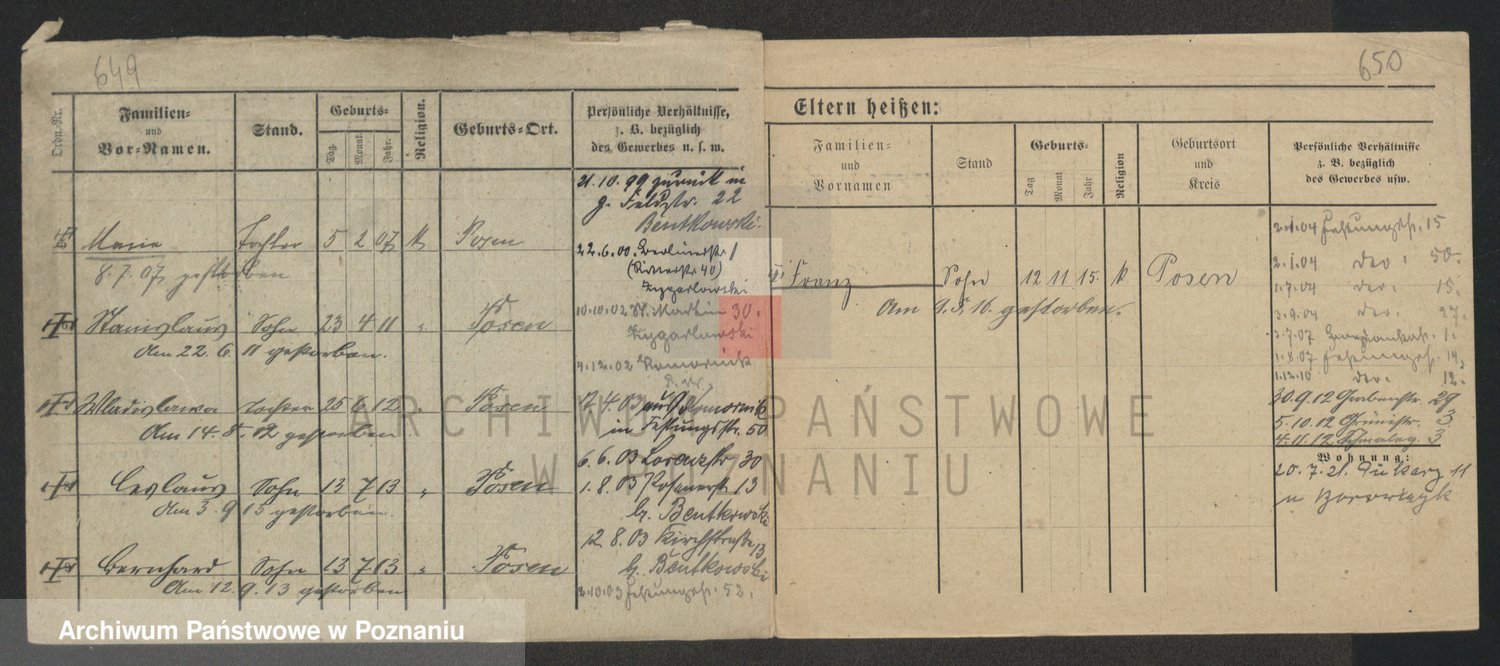 649
Ordn.-Nr.
Familien-
und
Vor-Namen.
Stand.
Geburts-
Tag.
Monat.
Jahr.
Religion.
Geburts-Ort.
Persönliche Verhältnisse,
z. B. bezüglich
des Gewerbes u. s. w.
21.10.99 zurück in
g. Feldstr. 22
Bentkowski.
Marie Tochter 5 2 07 k Posen
8.7.07 gestorben
22.6.00. Berlinerstr. 1
(Ritterstr 40)
Stanislaus Sohn 23 4 11 " Posen
Am 22. 6. 11 gestorben.
10.10.02 St. Martin 30.
4.12.02
Wladislawa Tochter 25 6 12 " Posen
Am 14. 8. 12 gestorben
17.4.03 aus Komornik
in Festungsstr. 50
Ceslaus Sohn 13 7 13 " Posen
Am 3. 9 13 gestorben.
6.6.03 30
1.8.03 Posenerstr 13
b. Bentkowski
Bernhard Sohn 13 7 13 " Posen
Am 12. 9. 13 gestorben
12.8.03 Kirchstraße 13
b. Bentkowski
2.10.03 Festungsstr. 52.
650
Eltern heißen:
Familien-
und
Vornamen
Stand
Geburts-
Tag
Monat
Jahr
Religion
Geburtsort
und
Kreis
Persönliche Verhältnisse
z. B. bezüglich
des Gewerbes usw.
Franz Sohn 12 11 15. k Posen
Am 9. 5. 16. gestorben.
2.1.04 Festungsstr. 15
2.1.04 dto. 50.
1.7.04 dto. 15.
3.9.04 dto. 27.
1.8.07 Festungsstr. 14
1.12.10 dto. 12.
30.9.12 Grabenstr. 29
5.10.12 Grünestr. 3
4.11.12 3
Wohnung:
20.7.21. 11
ARCHIWUM PAŃSTWOWE
W POZNANIU
Archiwum Państwowe w Poznaniu